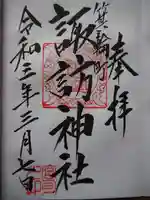 奉拝
箕輪町
諏訪神社
令和三年三月七日